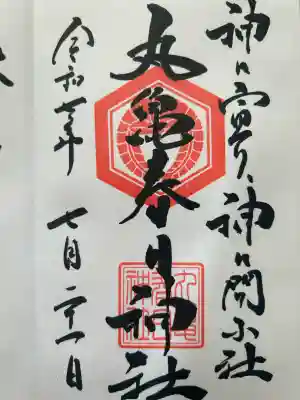 神々宿り、神々小社
丸亀春日神社
令和七年 七月二十一日